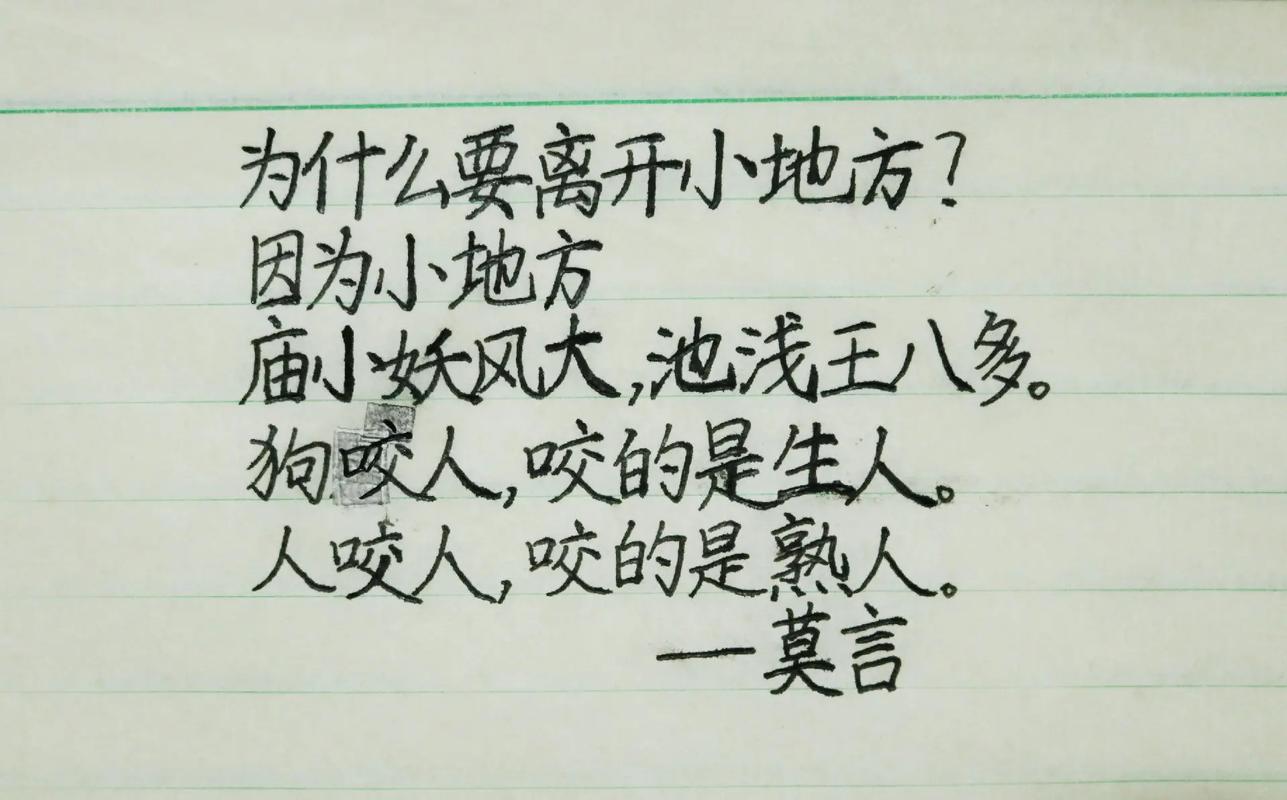 为什么要离开小地方？
因为小地方
庙小妖风大，池浅王八多。
狗咬人，咬的是生人。
人咬人，咬的是熟人。
—莫言